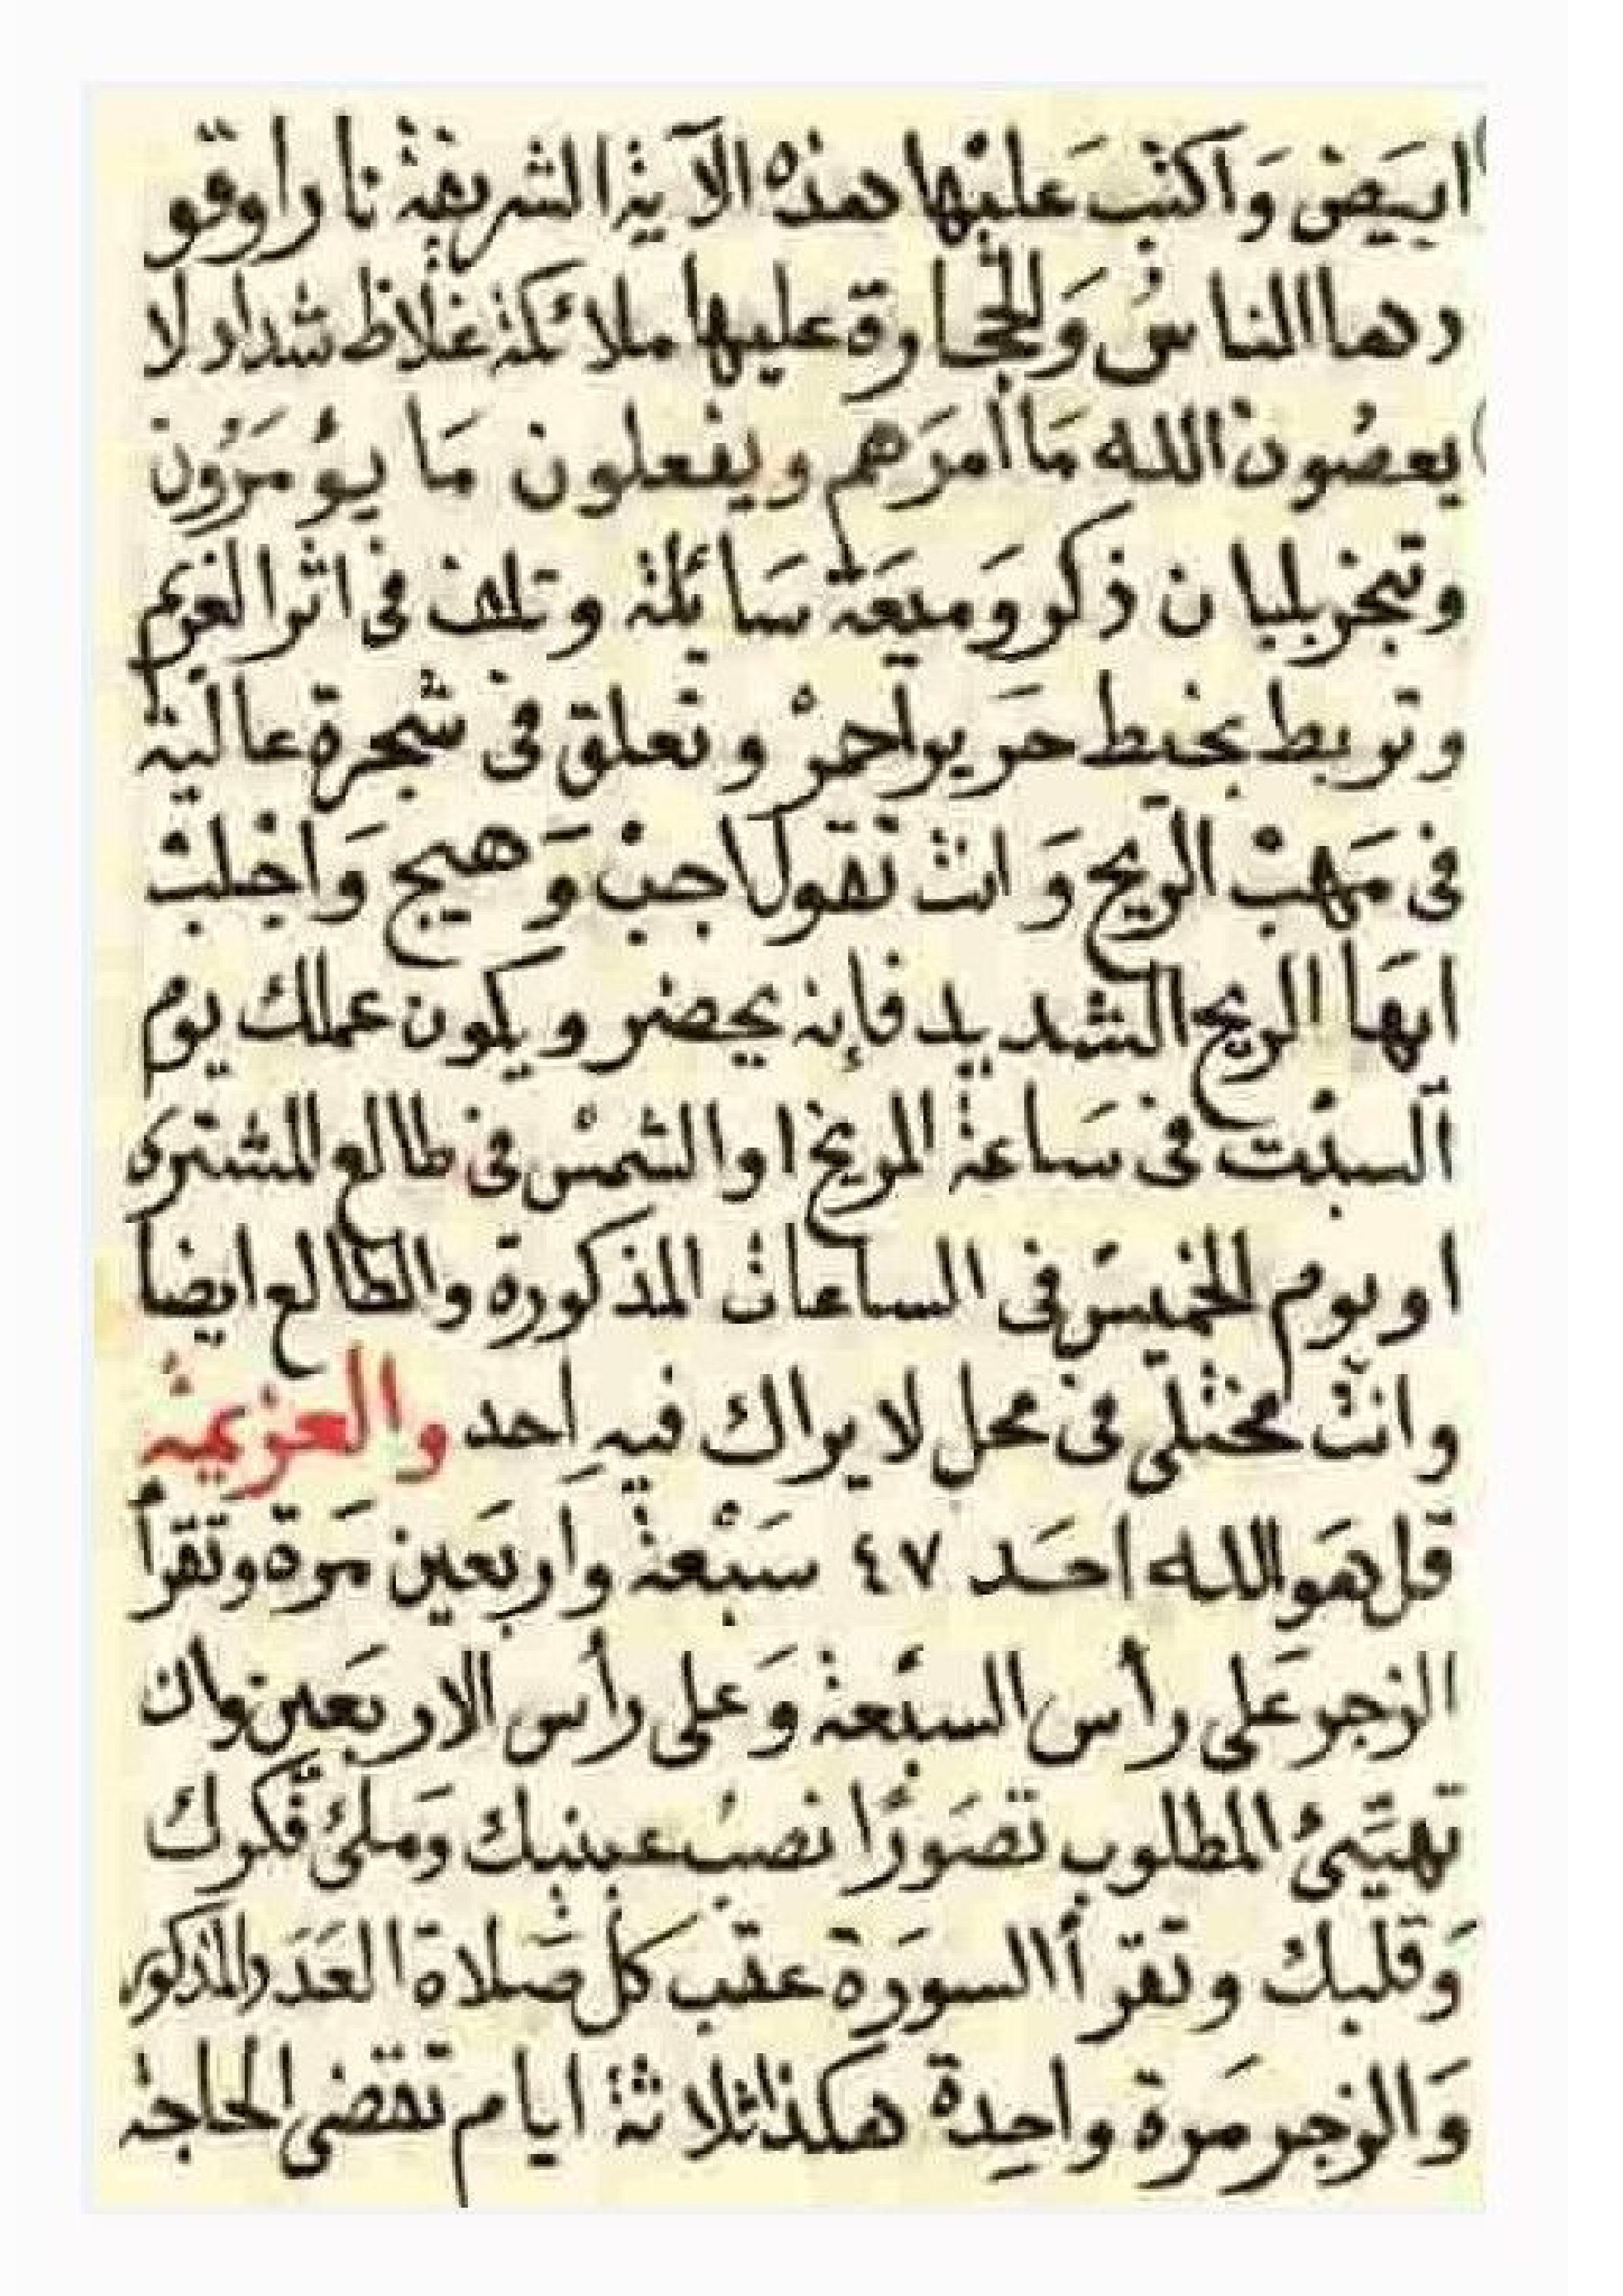 ابيَض وَاكتب عَليْها هذه الآية الشريفة نارا وقو
دها الناسُ وَالحجارة عليها ملائكة غلاظ شداد لا
يعصُون الله مَا أمرَهم ويفعلون مَا يؤمَرُون
وتبخر بلبان ذكر وميعَة سَائلة وتلف في اثر الغريم
وتربط بخيط حَرير احمرْ وتعلق في شجرة عالية
في مَهبْ الرّيح وَانت تقول اجبْ وَهيج وَاجلبْ
ايهَا الريح الشديد فإنه يحضر ويكون عملك يوم
السبْت في سَاعة المريخ او الشمسْ في طالع المشترى
او يوم الخميس في الساعات المذكورة والطالع ايضا
وانت مختلي في محل لا يراك فيهِ احد والعزيمة
قل هوَ الله احَد ٤٧ سَبْعة وَاربَعين مَرة وتقرأ
الزجر عَلى رأس السبْعة وَعلى رأس الاربَعين وان
تهيّئ المطلوب تصَورًا نصب عينيك وَملئ فكرك
وَقلبك وتقرأ السورَة عقبَ كل صَلاة العَدَد المذكور
وَالزجر مَرة واحِدة هكذا ثلاثة ايام تقضى الحاجة